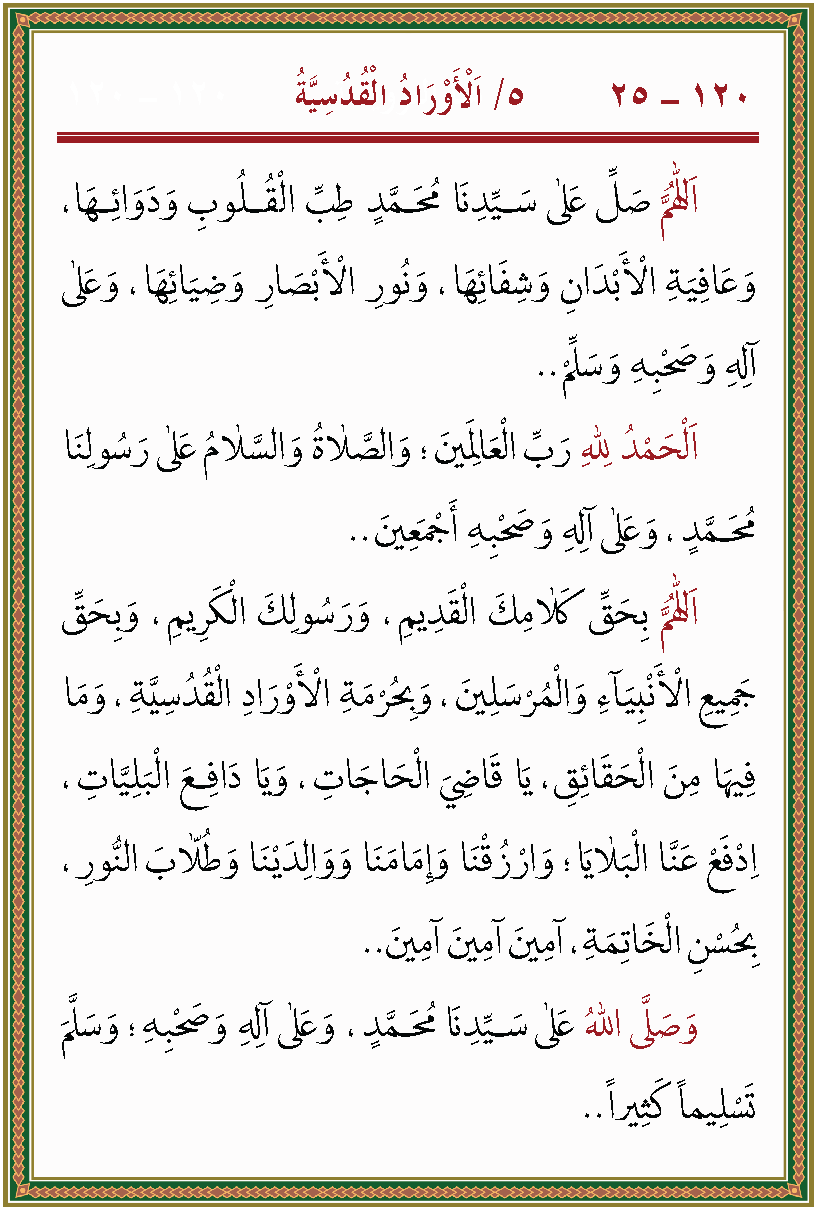 ١٢٠ – ٢٥ ٥/ اَلْأَوْرَادُ الْقُدُسِيَّةُ
اَللّٰهُمَّ صَلِّ عَلٰى سَيِّدِنَا مُحَمَّدٍ طِبِّ الْقُلُوبِ وَدَوَائِهَا،
وَعَافِيَةِ الْأَبْدَانِ وَشِفَائِهَا ، وَنُورِ الْأَبْصَارِ وَضِيَائِهَا ، وَعَلٰى
آلِهِ وَصَحْبِهِ وَسَلِّمْ..
اَلْحَمْدُ لِلهِ رَبِّ الْعَالَمِينَ ؛ وَالصَّلَاةُ وَالسَّلَامُ عَلٰى رَسُولِنَا
مُحَمَّدٍ ، وَعَلٰى آلِهِ وَصَحْبِهِ أَجْمَعِينَ..
اَللّٰهُمَّ بِحَقِّ كَلَامِكَ الْقَدِيمِ ، وَرَسُولِكَ الْكَرِيمِ ، وَبِحَقِّ
جَمِيعِ الْأَنْبِيَآءِ وَالْمُرْسَلِينَ ، وَبِحُرْمَةِ الْأَوْرَادِ الْقُدُسِيَّةِ ، وَمَا
فِيهَا مِنَ الْحَقَائِقِ ، يَا قَاضِيَ الْحَاجَاتِ ، وَيَا دَافِعَ الْبَلِيَّاتِ ،
اِدْفَعْ عَنَّا الْبَلَايَا ؛ وَارْزُقْنَا وَإِمَامَنَا وَوَالِدَيْنَا وَطُلَّابَ النُّورِ ،
بِحُسْنِ الْخَاتِمَةِ ، آمِينَ آمِينَ آمِينَ..
وَصَلَّى اللهُ عَلٰى سَيِّدِنَا مُحَمَّدٍ ، وَعَلٰى آلِهِ وَصَحْبِهِ ؛ وَسَلَّمَ
تَسْلِيماً كَثِيراً..